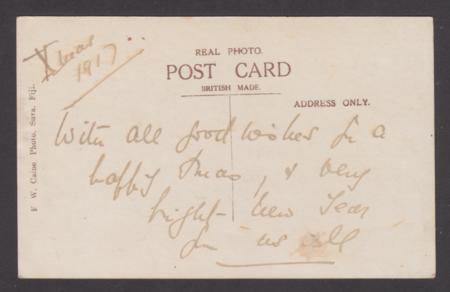 Xmas
1917
REAL PHOTO.
POST CARD
BRITISH MADE.
ADDRESS ONLY.
F. W. Caine Photo, Suva, Fiji.
With all good wishes for a
happy Xmas, & very
bright New Year
for us all